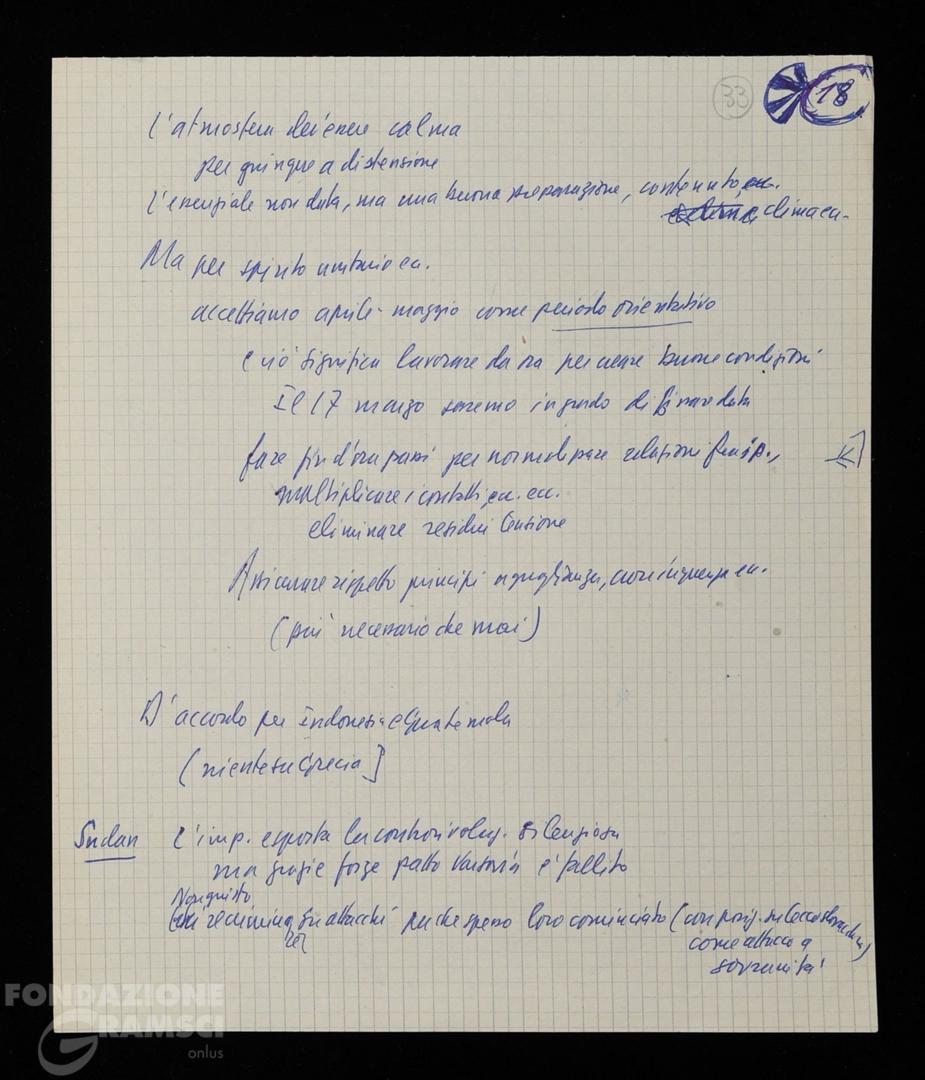 33
18
l'atmosfera divenire calma
per giungere a distensione
L'essenziale non data, ma una buona preparazione, contenuto, ecc.
clima ecc.
Ma per spirito unitario ecc.
accettiamo aprile-maggio come periodo orientativo
e ciò significa lavorare da ora per creare buone condizioni
Il 17 marzo saremo in grado di fissare data
fare fin d'ora passi per normalizzare relazioni
moltiplicare i contatti, ecc. ecc.
eliminare residui tensione
Assicurare rispetto principi eguaglianza, ecc.
(più necessario che mai)
D'accordo per Indonesia e Guatemala
(niente su Grecia]
Sudan L'imp. esporta la controrivoluz. silenziosa
ma grazie forze patto Varsavia è fallito
Non giusto
su attacchi perché spesso loro cominciato (con posiz. su Cecoslovacchia)
come attacco a
sovranità
FONDAZIONE
GRAMSCI
onlus